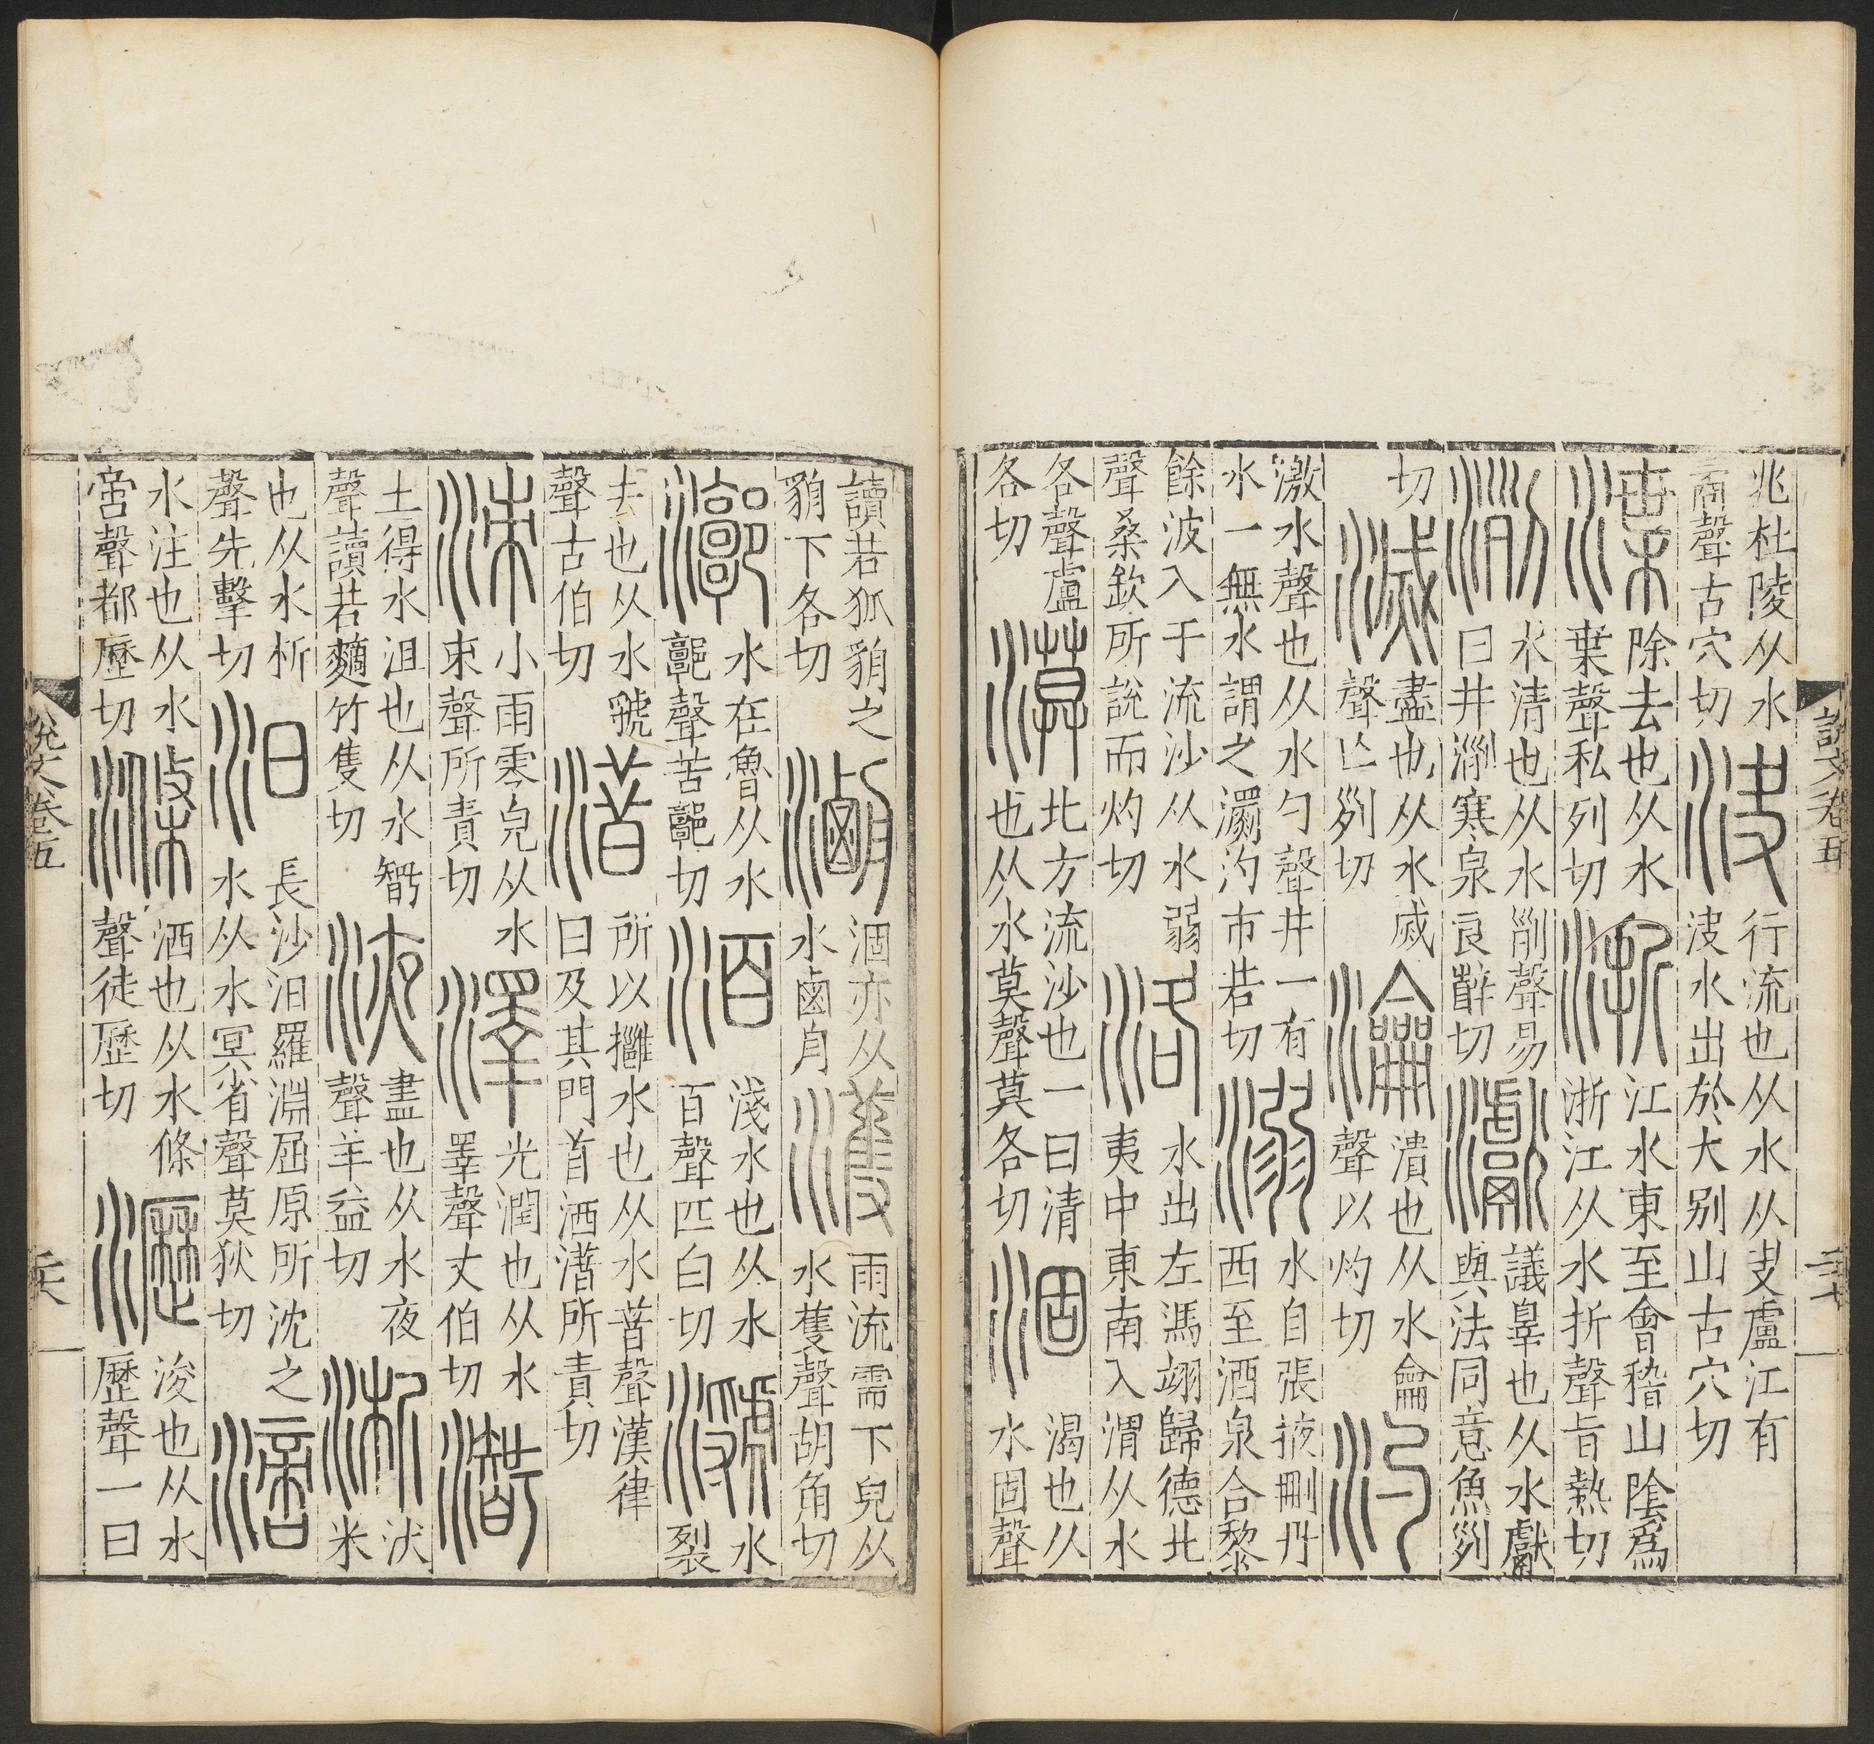 說文卷五
二十七
兆杜陵从水矞聲古穴切決行流也从水从夬盧江有決水出於大别山古穴切
渫除去也从水枼聲私列切浙江水東至會稽山陰爲浙江从水折聲旨熱切
洌水清也从水𠛱聲易曰井洌寒泉良辥切瀗議辠也从水獻與法同意魚列
切滅盡也从水烕聲亡列切瀹漬也从水龠聲以灼切汋
激水聲也从水勺聲井一有水一無水謂之瀱汋市若切溺水自張掖刪丹西至酒泉合黎
餘波入于流沙从水弱聲桑欽所說而灼切洛水出左馮翊歸德北夷中東南入渭从水
各聲盧各切漠北方流沙也一曰清也从水莫聲莫各切涸渴也从水固聲
讀若狐貈之貈下各切涸亦从水鹵舟濩雨流需下皃从水蒦聲胡角切
漷水在魯从水郭聲苦郭切洦淺水也从水百聲匹白切㶁水裂
去也从水虢聲古伯切所以水也从水昔聲漢律曰及其門首洒所責切
洓小雨零皃从水朿聲所責切澤光潤也从水睪聲丈伯切潪
土得水沮也从水聲讀若竹隻切液盡也从水夜聲羊益切淅汏米
也从水析聲先擊切汨長沙汨羅淵屈原所沈之水从水冥省聲莫狄切滴
水注也从水啻聲都歷切滌洒也从水條聲徒歷切瀝浚也从水歷聲一曰
說文卷五